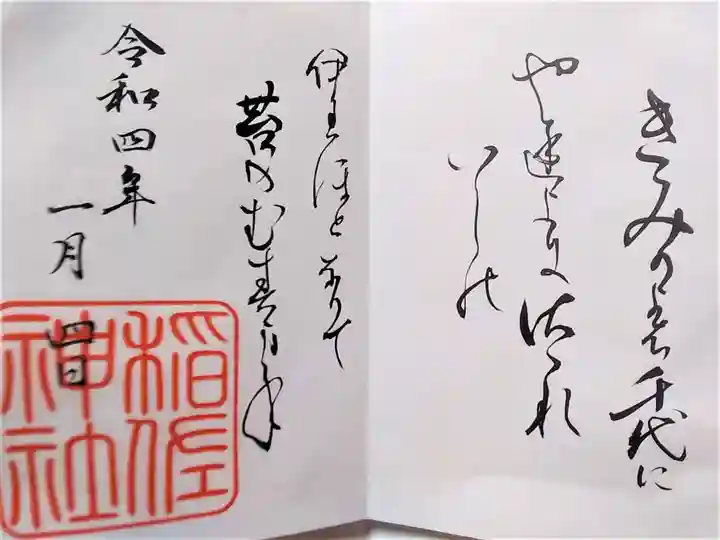 きみかよは千代に
やちよにさゝれ
いしの
伊はほとなりて
苔のむすまて
令和四年
一月四日
稲佐
神社